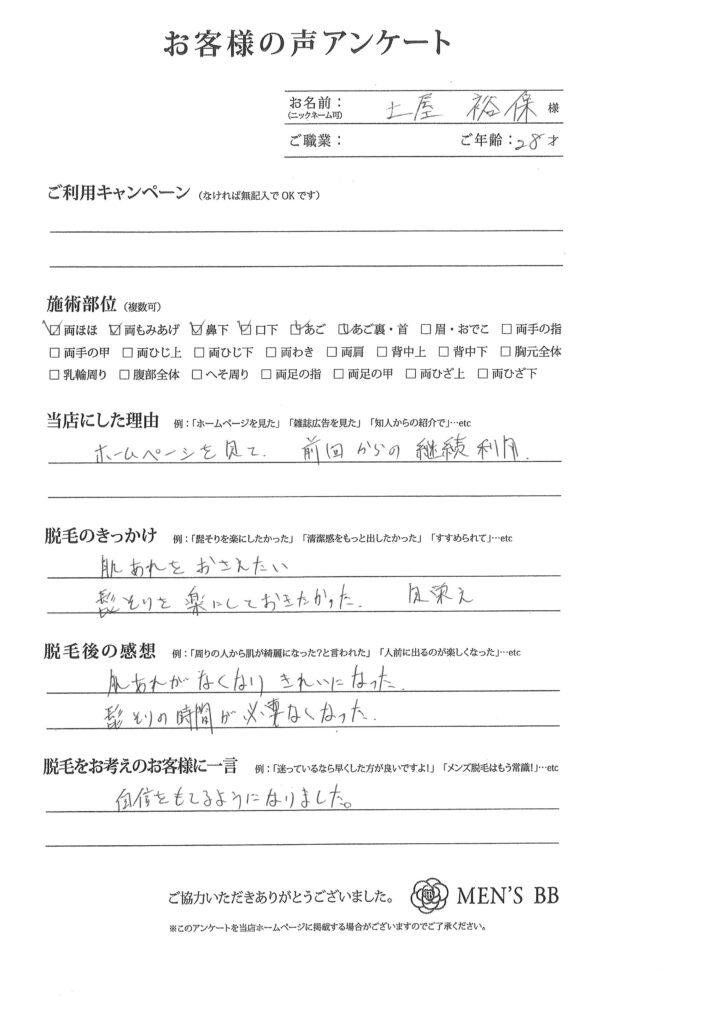 お客様の声アンケート
お名前:
(ニックネーム可)
土屋 裕保 様
ご職業: ご年齢:28才
ご利用キャンペーン (なければ無記入でOKです)
施術部位 (複数可)
☑両ほほ ☑両もみあげ ☑鼻下 ☑口下 ☑あご ☑あご裏・首 □眉・おでこ □両手の指
□両手の甲 □両ひじ上 □両ひじ下 □両わき □両肩 □背中上 □背中下 □胸元全体
□乳輪周り □腹部全体 □へそ周り □両足の指 □両足の甲 □両ひざ上 □両ひざ下
当店にした理由 例:「ホームページを見た」「雑誌広告を見た」「知人からの紹介で」…etc
ホームページを見て. 前回からの継続利用.
脱毛のきっかけ 例:「髭そりを楽にしたかった」「清潔感をもっと出したかった」「すすめられて」…etc
肌あれをおさえたい
髭そりを楽にしておきたかった. 見栄え
脱毛後の感想 例:「周りの人から肌が綺麗になった?と言われた」「人前に出るのが楽しくなった」…etc
肌あれがなくなりきれいになった.
髭そりの時間が必要なくなった.
脱毛をお考えのお客様に一言 例:「迷っているなら早くした方が良いですよ!」「メンズ脱毛はもう常識!」…etc
自信をもてるようになりました。
ご協力いただきありがとうございました。 MEN'S BB
※このアンケートを当店ホームページに掲載する場合がございますのでご了承ください。